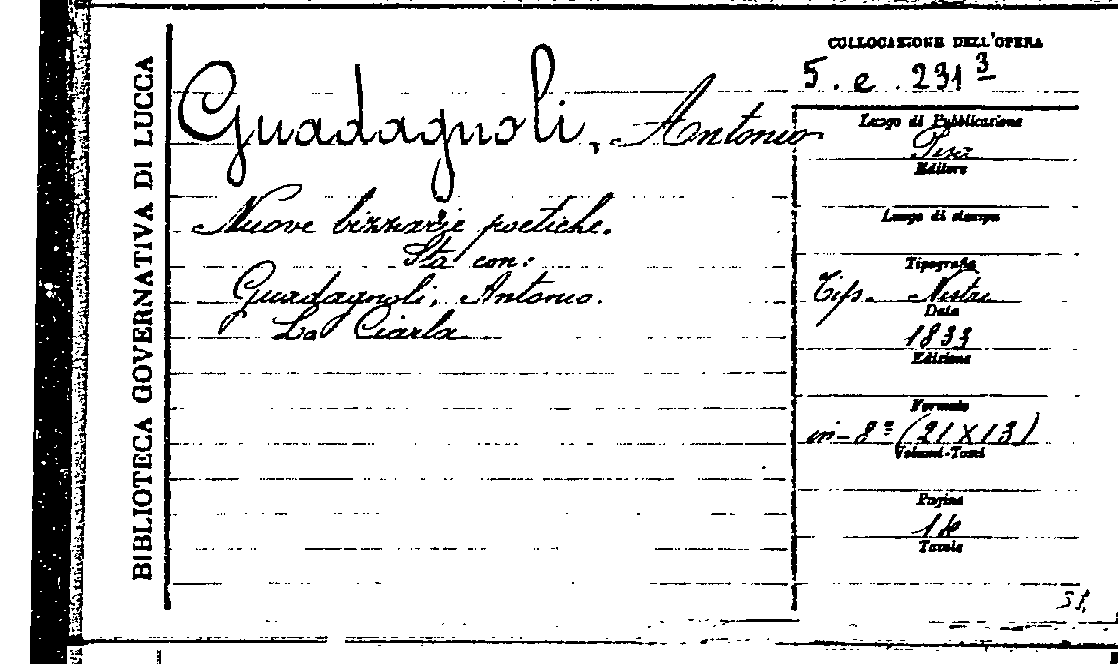 BIBLIOTECA GOVERNATIVA DI LUCCA
Guadagnoli, Antonio
Nuove bizzarie poetiche.
Sta con:
Guadagnoli, Antonio.
La Ciarla
COLLOCAZIONE DELL'OPERA
5. e. 231 3
Luogo di Pubblicazione
Pisa
Editore
Luogo di stampa
Tipografia
Tip. Nistri
Data
1833
Edizione
Formato
in-8º (21 X 13)
Volumi-Tomi
Pagine
Tavole